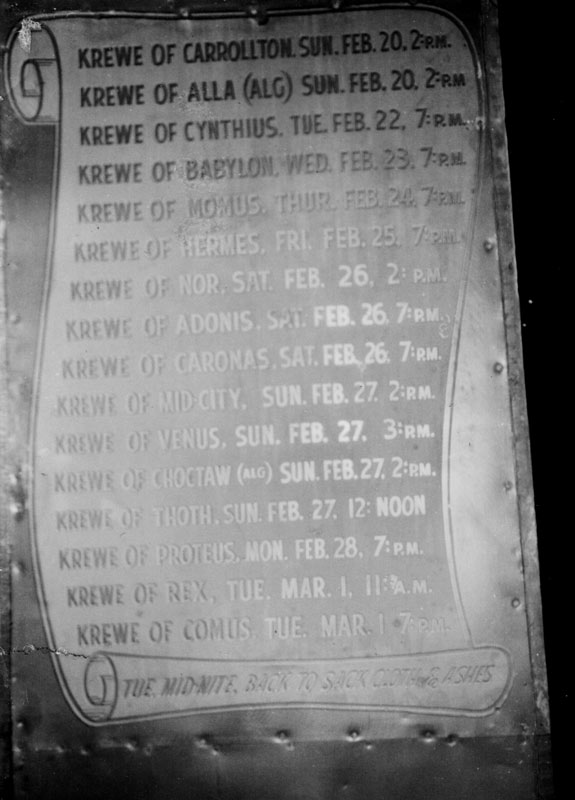 KREWE OF CARROLLTON. SUN. FEB. 20, 2: P.M.
KREWE OF ALLA (ALG) SUN. FEB. 20, 2: P.M
KREWE OF CYNTHIUS, TUE. FEB. 22, 7: P.M.
KREWE OF BABYLON, WED. FEB. 23, 7: P.M.
KREWE OF MOMUS, THUR. FEB. 24, 7: P.M.
KREWE OF HERMES, FRI. FEB. 25, 7: P.M.
KREWE OF NOR, SAT. FEB. 26, 2: P.M.
KREWE OF ADONIS, SAT. FEB. 26, 7: P.M.
KREWE OF CARONAS, SAT. FEB. 26, 7: P.M.
KREWE OF MID-CITY, SUN. FEB. 27, 2: P.M.
KREWE OF VENUS, SUN. FEB. 27, 3: P.M.
KREWE OF CHOCTAW (ALG) SUN. FEB. 27, 2: P.M.
KREWE OF THOTH, SUN. FEB. 27, 12: NOON
KREWE OF PROTEUS, MON. FEB. 28, 7: P.M.
KREWE OF REX, TUE. MAR. 1, 11: A.M.
KREWE OF COMUS, TUE. MAR. 1 7: P.M.
TUE. MID-NITE, BACK TO SACK CLOTH & ASHES